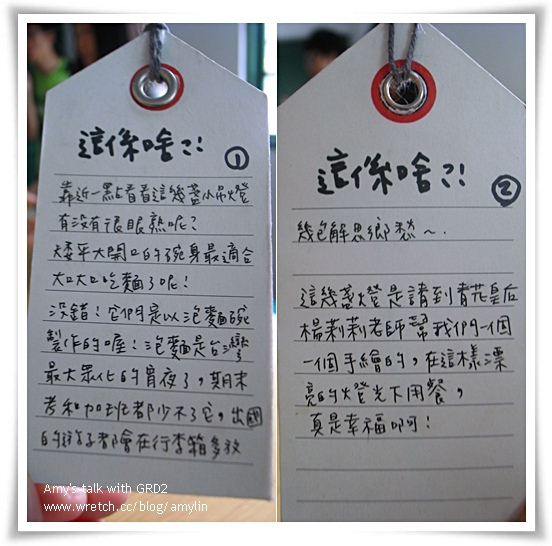 這係啥?!
①
靠近一點看看這幾盞小吊燈
有沒有很眼熟呢?
矮平大開口的碗身最適合
大口大口吃麵了呢!
沒錯!它們是以泡麵碗
製作的喔!泡麵是台灣
最大眾化的宵夜了,期末
考和加班都少不了它,出國
的遊子都會在行李箱多放
這係啥?!
②
幾包解思鄉愁~.
這幾盞燈是請到青花皇后
楊莉莉老師幫我們一個
一個手繪的,在這樣漂
亮的燈光下用餐,
真是幸福啊!
Amy's talk with GRD2
www.wretch.cc/blog/amylin